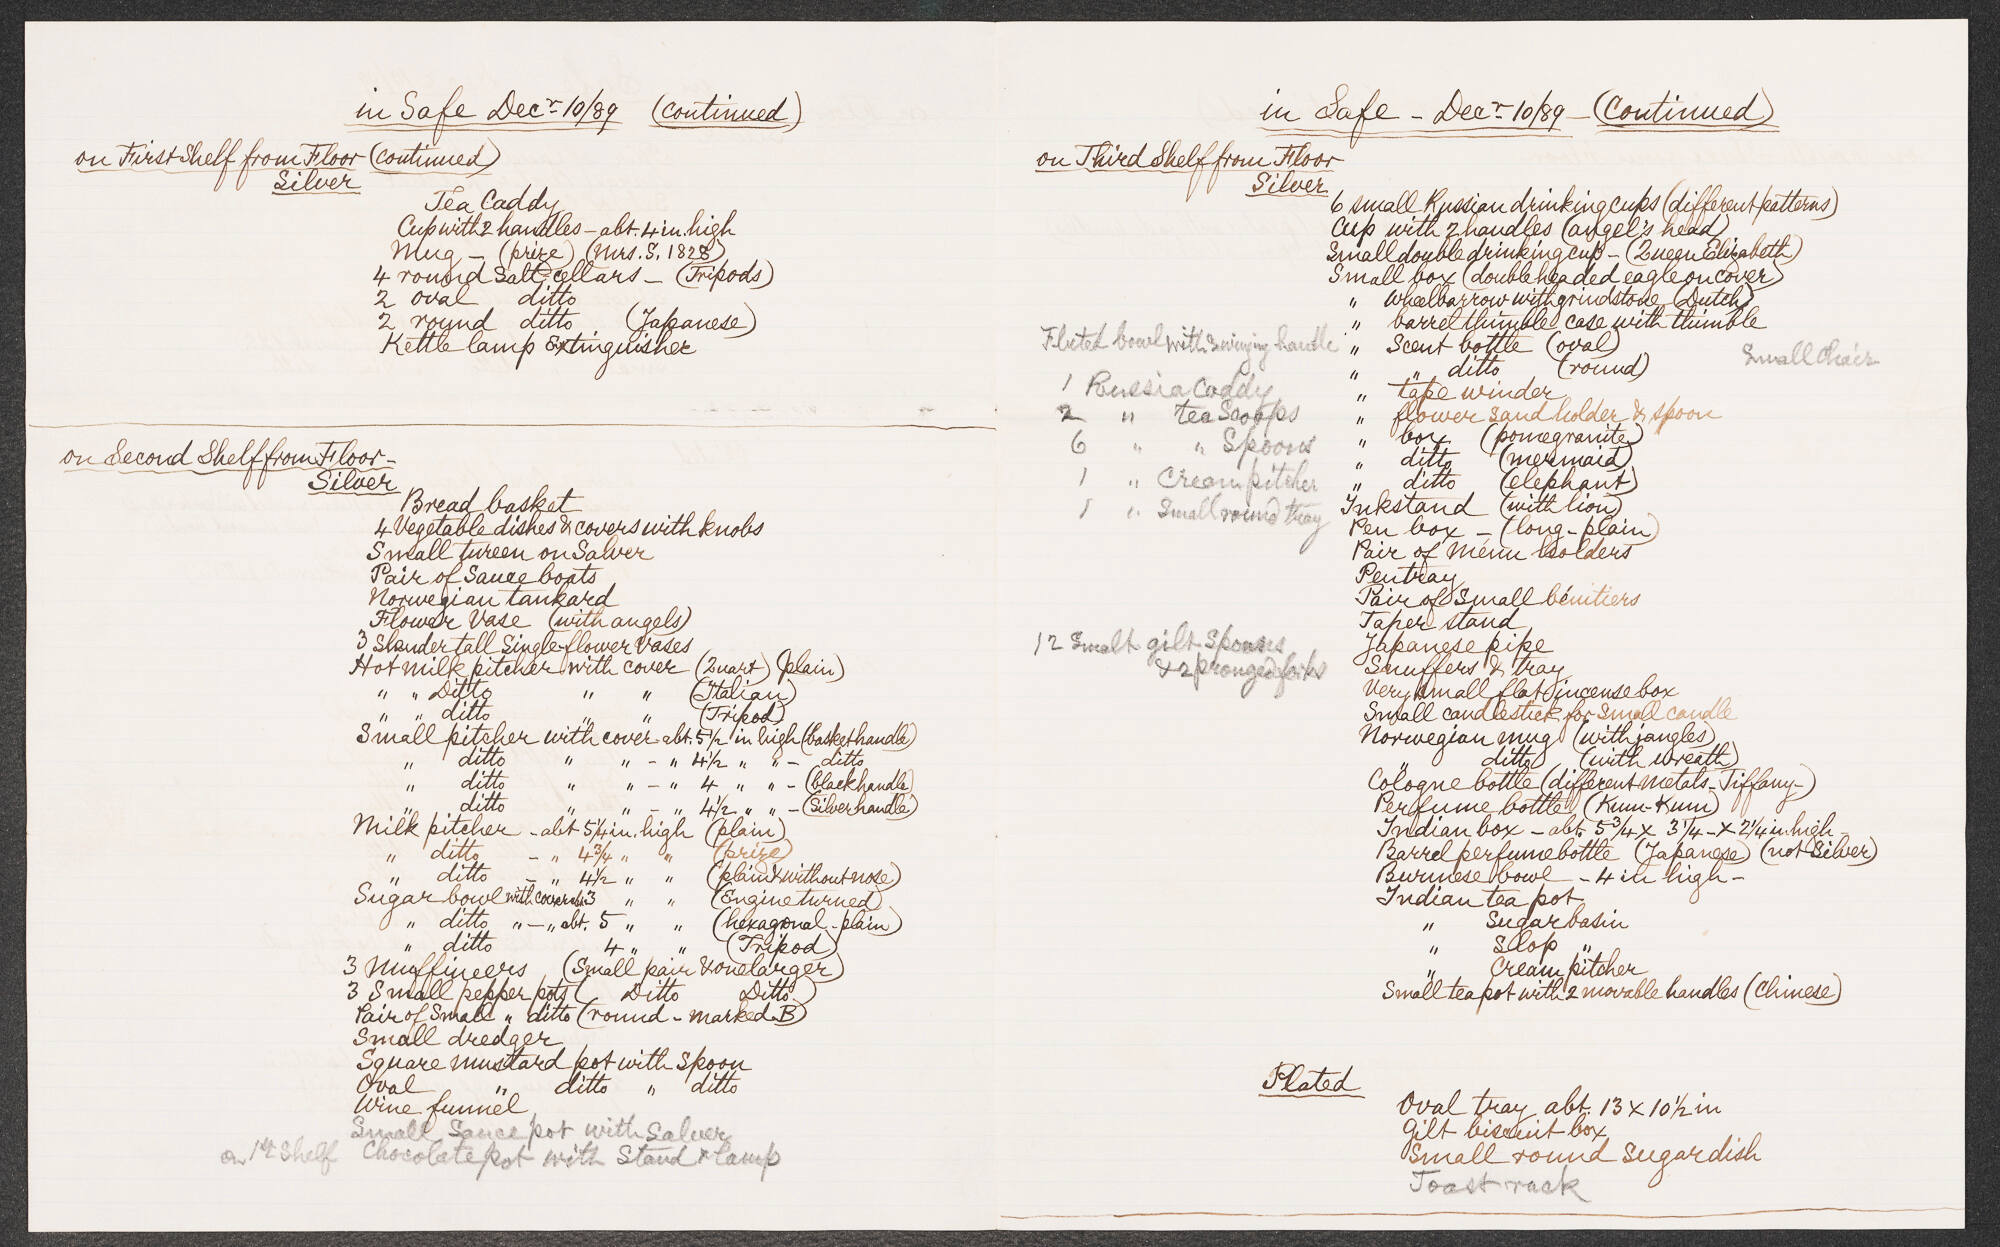 in Safe Decr 10/89 (continued)
on First Shelf from Floor (continued)
Silver
Tea Caddy
Cup with 2 handles - abt. 4 in. high
Mug - (prize) (Mrs. S. 1828)
4 round Salt Cellars - (Tripods)
2 oval ditto
2 round ditto (Japanese)
Kettle lamp Extinguisher
on Second Shelf from Floor -
Silver
Bread basket
4 Vegetable dishes & covers with knobs
Small tureen on Salver
Pair of Sauce boats
Norwegian tankard
Flower Vase (with angels)
3 Slender tall Single flower Vases
Hot milk pitcher with cover (Quart) (plain)
" " Ditto " " (Italian)
" " ditto " " (Tripod)
Small pitcher with cover abt. 5 1/2 in high (basket handle)
" ditto " " - " 4 1/2 " " - ditto
" ditto " " - " 4 " " - (black handle)
" ditto " " - " 4 1/2 " " - (Silver handle)
Milk pitcher - abt 5 1/4 in. high (plain)
" ditto - " 4 3/4 " " (prize)
" ditto - " 4 1/2 " " (plain & without nose)
Sugar bowl with cover abt 3 " " (Engine turned)
" ditto " - " abt. 5 " " (hexagonal - plain)
" ditto 4 " " (Tripod)
3 Muffineers (Small pair & one larger)
3 Small pepper pots ( Ditto Ditto )
Pair of Small " ditto (round - marked B)
Small dredger
Square mustard pot with Spoon
Oval " ditto " ditto
Wine funnel
Small Sauce pot with Salver
on 1st Shelf Chocolate pot with Stand & lamp
in Safe - Decr 10/89 - (Continued)
on Third Shelf from Floor
Silver
6 small Russian drinking cups (different patterns)
Cup with 2 handles (angel's head)
Small double drinking cup - (Queen Elizabeth)
Small box (double headed eagle on cover)
" wheelbarrow with grindstone (Dutch)
" barrel thimble case with thimble
Fluted bowl with Swinging handle
" Scent bottle (oval)
Small Chair
" " ditto (round)
1 Russia Caddy
" tape winder
2 " tea Scoops
" flower Sand holder & spoon
6 " " Spoons
" box (pomegranite)
" ditto (mermaid)
1 " Cream pitcher
" ditto (elephant)
1 " Small round tray
Inkstand (with lion)
Pen box - (long - plain)
Pair of Menu holders
Pen tray
Pair of Small bénitiers
Taper stand
12 Small gilt Spoons
& 2 pronged forks
Japanese pipe
Snuffers & tray
Very small flat incense box
Small candlestick for Small candle
Norwegian mug (with jangles)
" ditto (with wreath)
Cologne bottle (different metals - Tiffany -)
Perfume bottle (Kum-Kum)
Indian box - abt. 5 3/4 x 3 1/4 - x 2 1/4 in. high -
Barrel perfume bottle (Japanese) (not Silver)
Burmese bowl - 4 in high -
Indian tea pot
" Sugar basin
" Slop "
" Cream pitcher
Small tea pot with 2 movable handles (Chinese)
Plated
Oval tray abt. 13 x 10 1/2 in
Gilt biscuit box
Small round Sugar dish
Toast rack